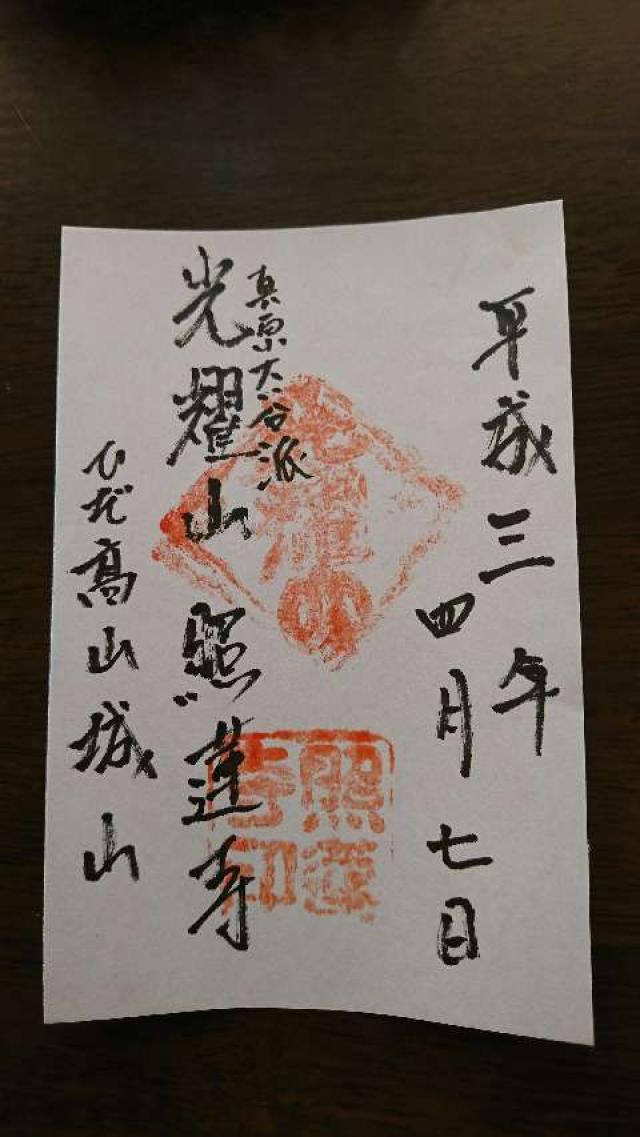 平成三年
四月七日
真宗大谷派
光耀山 照蓮寺
ひだ高山城山
光耀山
照蓮寺印